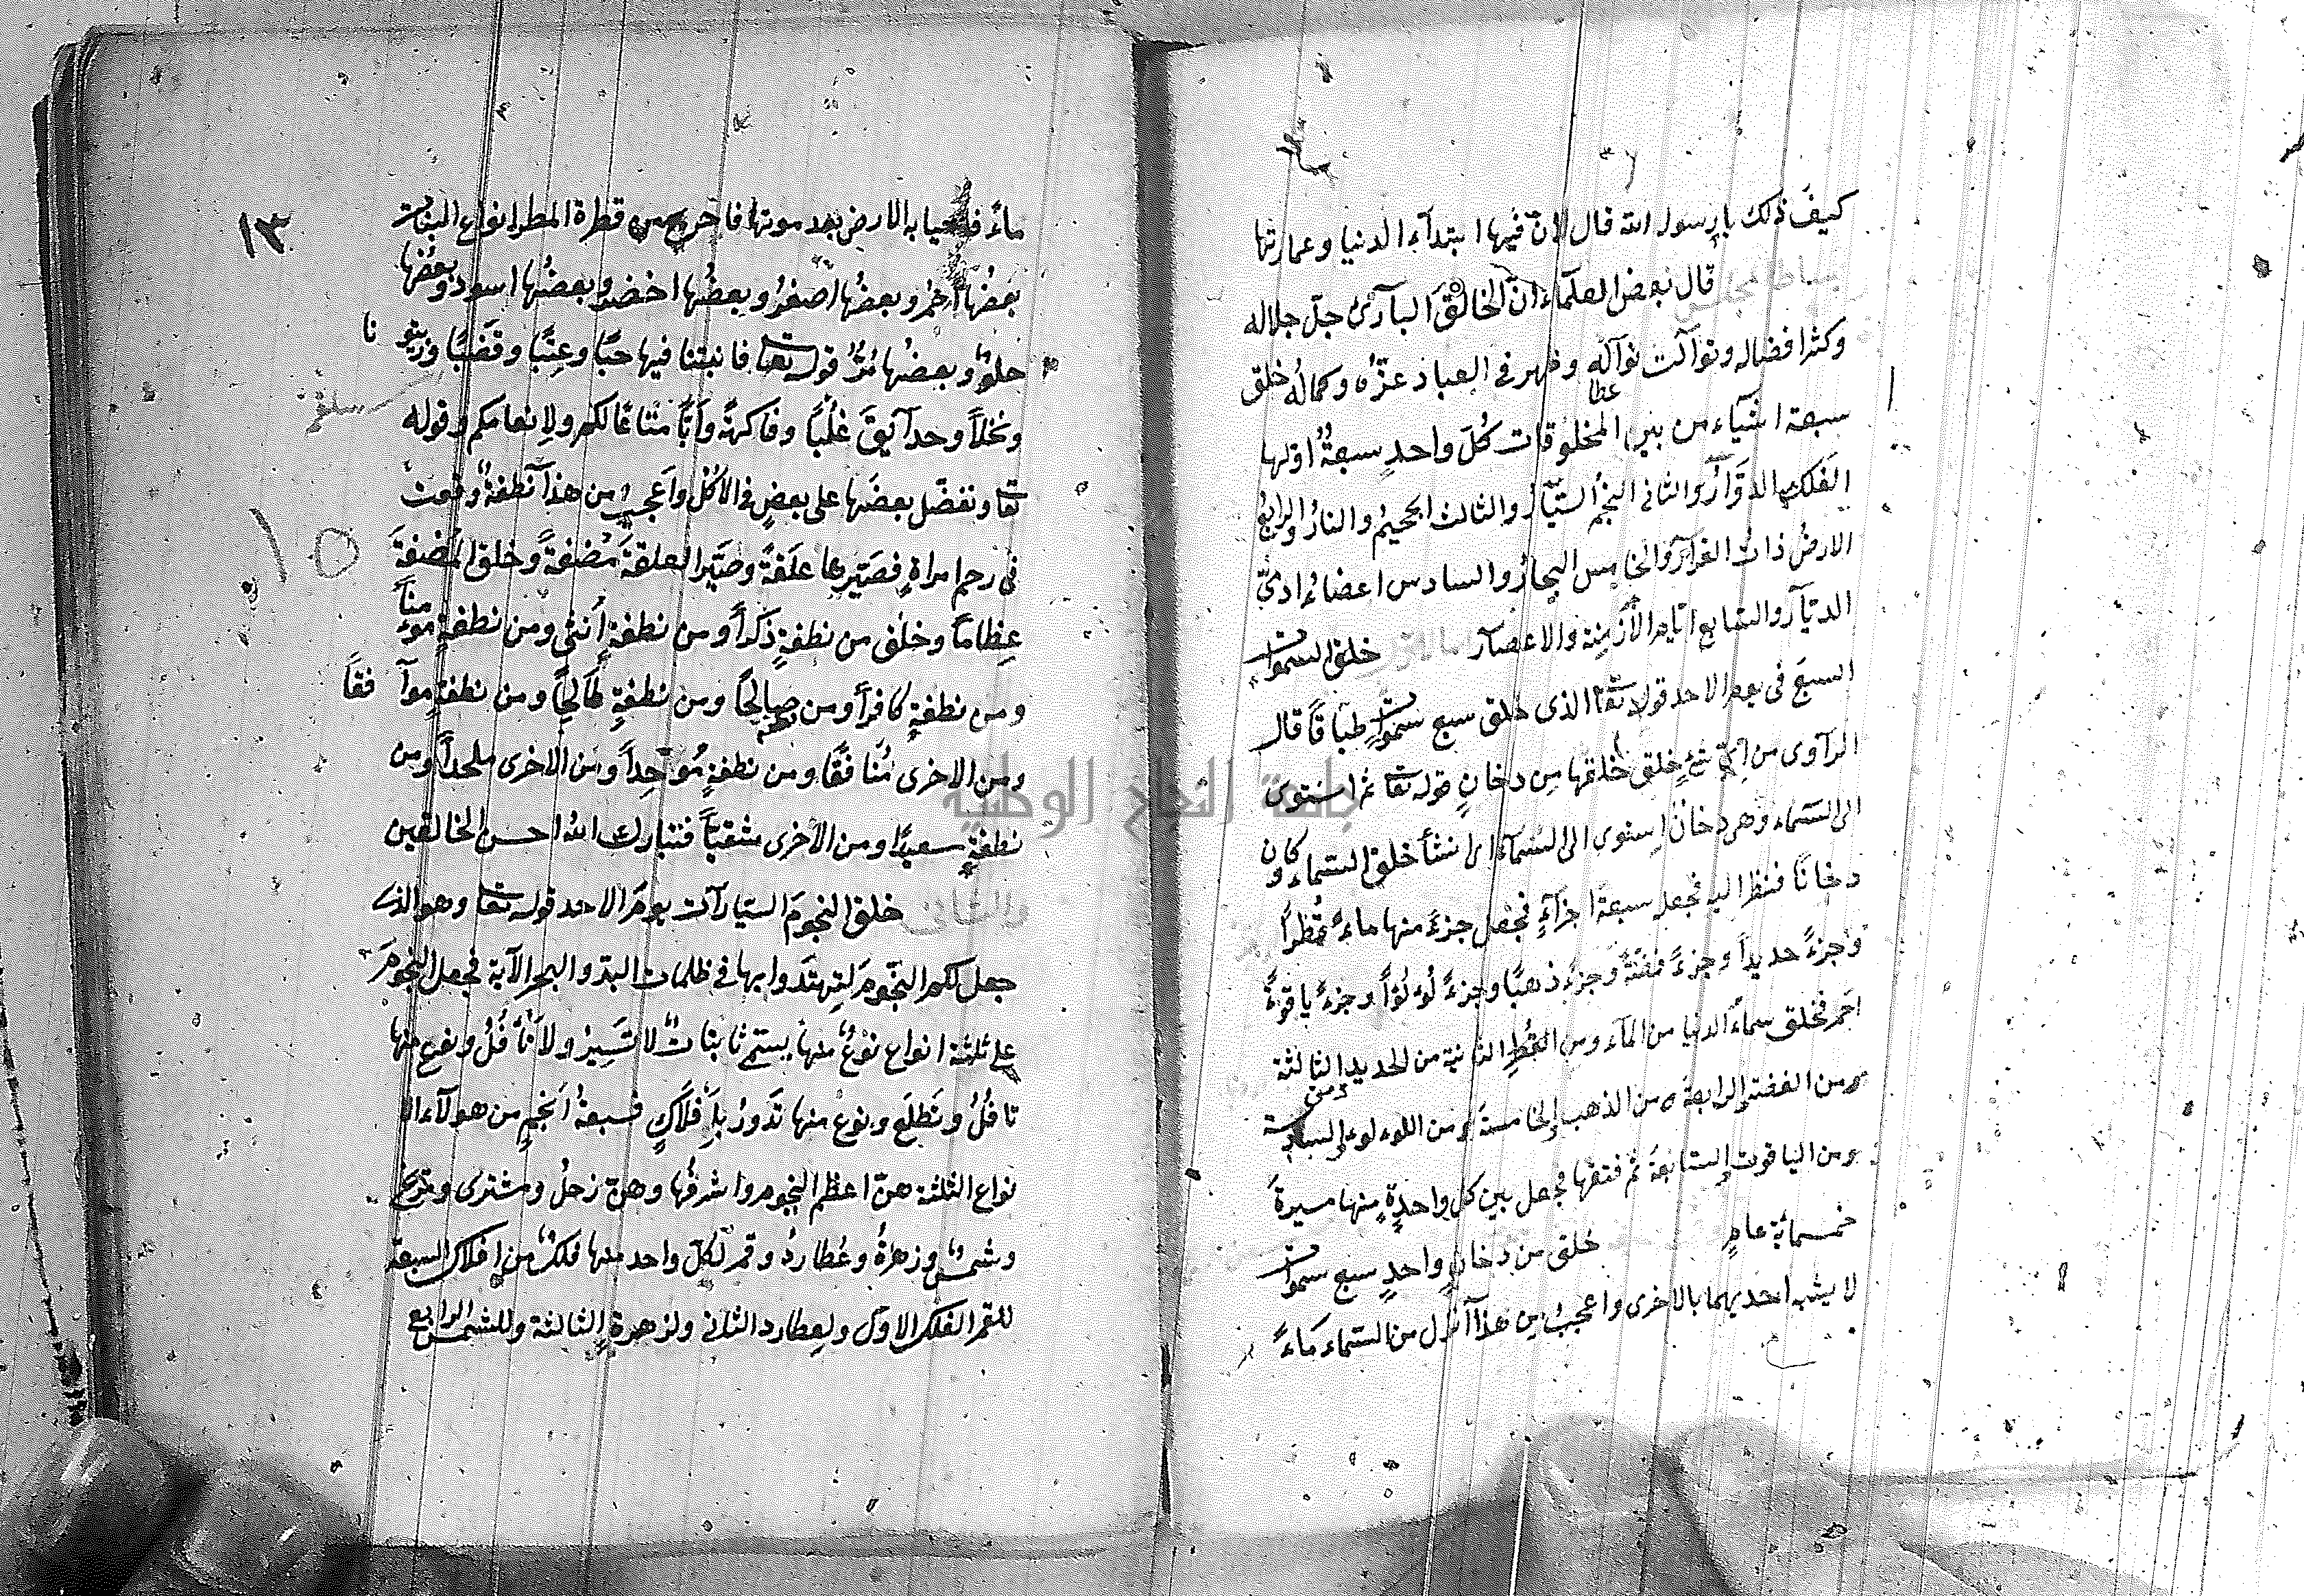 كيفَ ذلك يا رسول الله قال لانّ فيها ابتدآء الدنيا وعمارتها
قال بعض العلمآء انّ الخالقَ البآرئ جلّ جلاله
وكثر افضاله وتوآلت نوآله وظهر فى العباد عزّه وكماله خلق
عطا
سبعة اشيآء من بين المخلوقات كُلّ واحدٍ سبعةٌ اوّلها
الفلك الدوّارُ والثانى النجم السيّارُ والثالث الجحيمُ والنارُ والرابعُ
الارضُ ذاتُ القرآر والخامس البحارُ والسادس اعضاءُ ادمىّ
الديّآر والسابع ايّام الأزمِنة والاعصآر خلق السموات
السبعَ فى يوم الاحد قوله تعا الذى خلق سبع سموات طباقًا قال
الرآوى من اىّ شئٍ خلق خلقها من دخانٍ قوله تعا ثم استوى
الى السماء وهى دخان استوى الى السمآء اى انشأ خلق السماء وكان
دخانًا فنظر اليه فجعله سبعة اجزآءٍ فجعل جزءً منها ماءً قُطرًا
وجزءً حديدًا وجزءً فضّةً وجزءً ذهبًا وجزءً لؤلؤًا وجزءً ياقوةً
احمر فخلق سماءَ الدنيا من المآء ومن القُطرِ الثانية من الحديد الثالثة
ومن الفضّة الرابعة ومن الذهب الخامسة ومن اللوءلوء السادسة
ومن الياقوت السابعةَ ثم فتقها فجعل بين كل واحدةٍ منها مسيرةَ
خمسمائة عامٍ خلق من دخانٍ واحدٍ سبع سموات
لا يشبه احديهما بالاخرى واعجبُ من هذآ انزل من السماء مَاءً
١٣
ماءً فاحيا به الارض بعد موتها فاخرج من قطرة المطر انواع النبات
بعضُها احمرُ وبعضُها اصفرُ وبعضُها اخضر وبعضُها اسود وبعضُها
حلوٌ وبعضُها مُرٌّ قوله تعا فانبتنا فيها حبًّا وعِنبًا وقَضبًا وزيتونا
ونخلاً وحدآيقَ غُلبًا وفاكهةً وأبًّا متاعًا لكم ولانعامكم وقوله
تعا ونفضّل بعضَها على بعضٍ فى الاُكُل واَعجب من هذآ نطفةٌ وقعت
فى رحم امراةٍ فصَيّرها علَقةً وصَيّر العلقةَ مُضغةً وخلق المُضغةَ
عِظامًا وخلق من نطفةٍ ذَكرًا ومن نطفةٍ اُنثى ومن نطفةٍ موءمنًا
ومن نطفةٍ كافرًا ومن صالحًا ومن نطفةٍ طالحًا ومن نطفةٍ موآفقًا
ومن الاخرى مُنَافقًا ومن نطفةٍ مُوَحِداً ومن الاخرى ملحداً ومن
نطفةٍ سعيدًا ومن الاخرى شقيًّا فتبارك الله احسن الخالقين
والثانى خلق النجومَ السيّارآت يومَ الاحد قوله تعا وهو الذى
جعل لكم النجّومَ لتهتَدوا بها فى ظلمات البرّ والبحر الآية فجعل النجومَ
على ثلثة انواع نوعٌ منها يسمّى ثابتاتٌ لا تَسيرُ ولا تأفُلُ ونوع منها
تافُلُ وتَطلَع ونوع منها تَدَورُ بأَفلاَكٍ فسبعةُ اَنجمٍ من هولآء الا
نواع الثلثة هنّ اعظم النجوم واشرفُها وهنّ زحلُ ومشترى ومرّيخُ
وشمسٌ وزهرةُ وعُطاردُ وقمر لكلّ واحد منها فلكٌ من افلاك السبعة
للقمر الفلك الاوّل ولعطارد الثانى ولزهرةِ الثالثة وللشمس الرابع
١٥
جامعة النجاح الوطنية